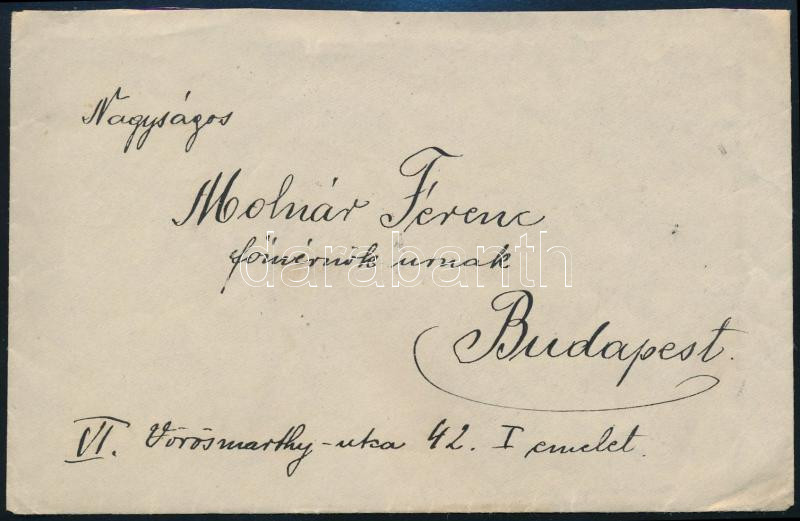 Nagyságos
Molnár Ferenc
főmérnök urnak
Budapest.
VI. Vörösmarthy-utca 42. I emelet.
darabanth